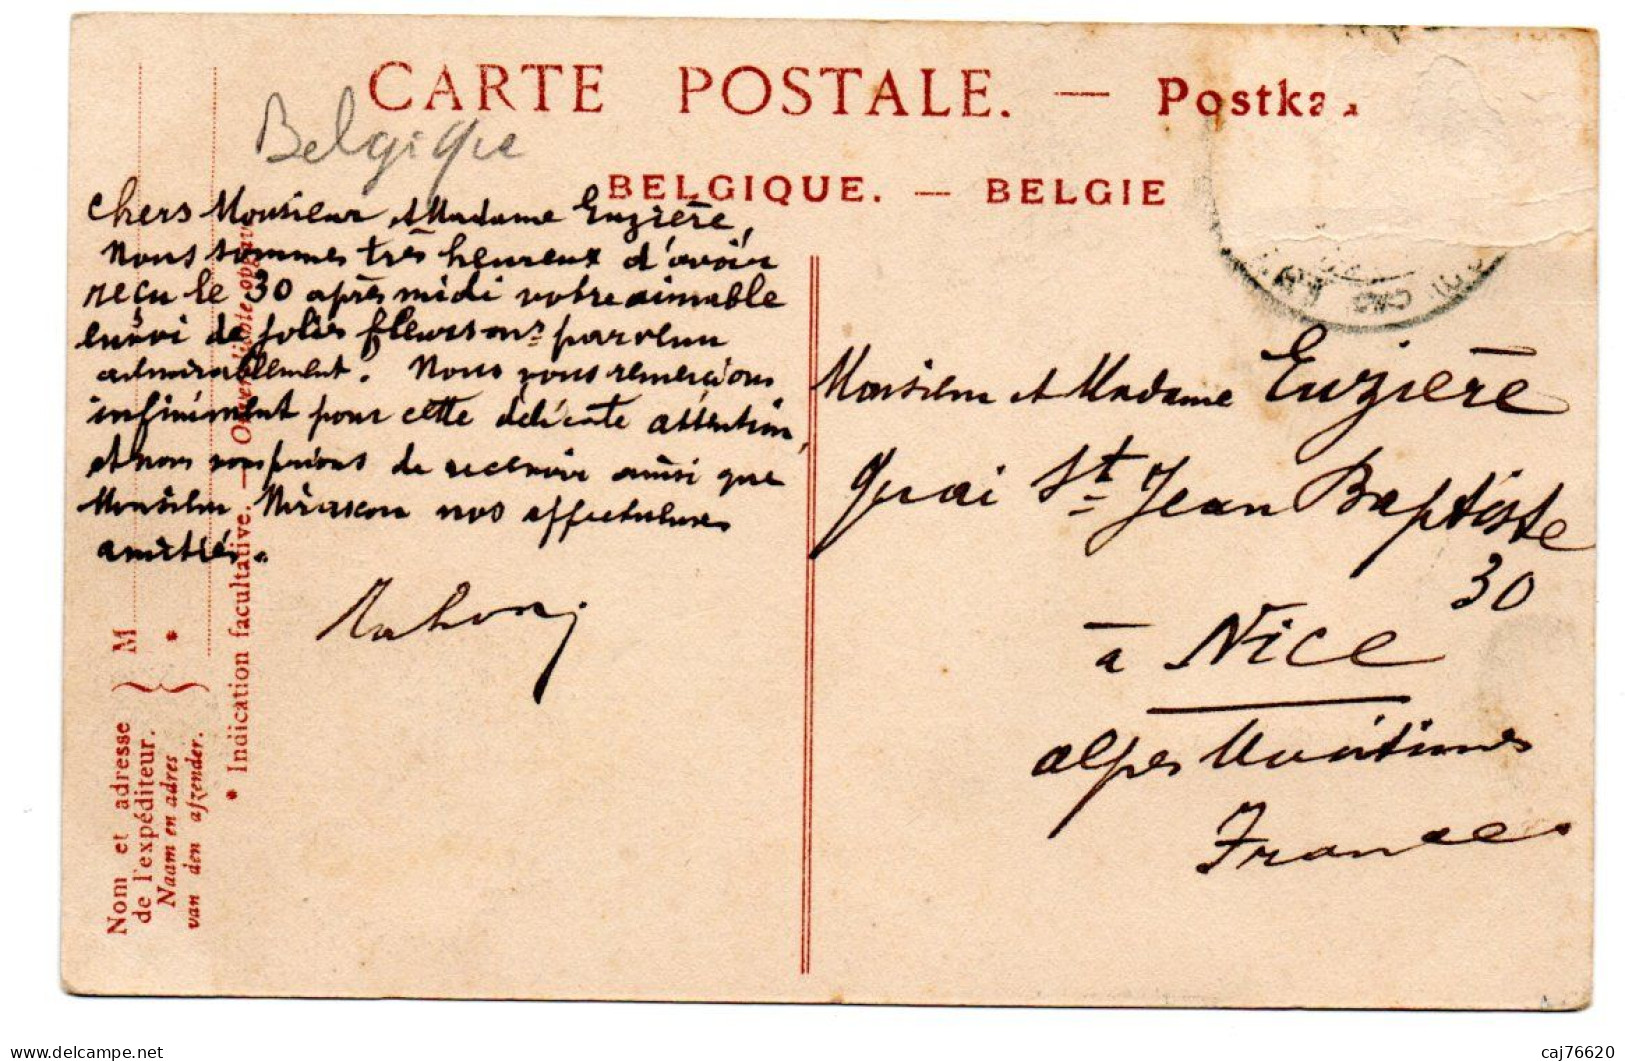 CARTE POSTALE. — Postka
BELGIQUE. — BELGIE
Belgique
Chers Monsieur et Madame Euzière,
Nous sommes très heureux d'avoir
reçu le 30 après midi votre aimable
envoi de jolies fleurs parvenu
admirablement. Nous vous remercions
infiniment pour cette délicate attention,
et nous vous prions de recevoir ainsi que
Monsieur nos affectueuses
amitiés.
Monsieur et Madame Euzière
Quai St Jean Baptiste
30
à Nice
Alpes Maritimes
France
Nom et adresse
de l'expéditeur. } M
Naam en adres
van den afzender. } *
* Indication facultative. —
delcampe.net
caj76620